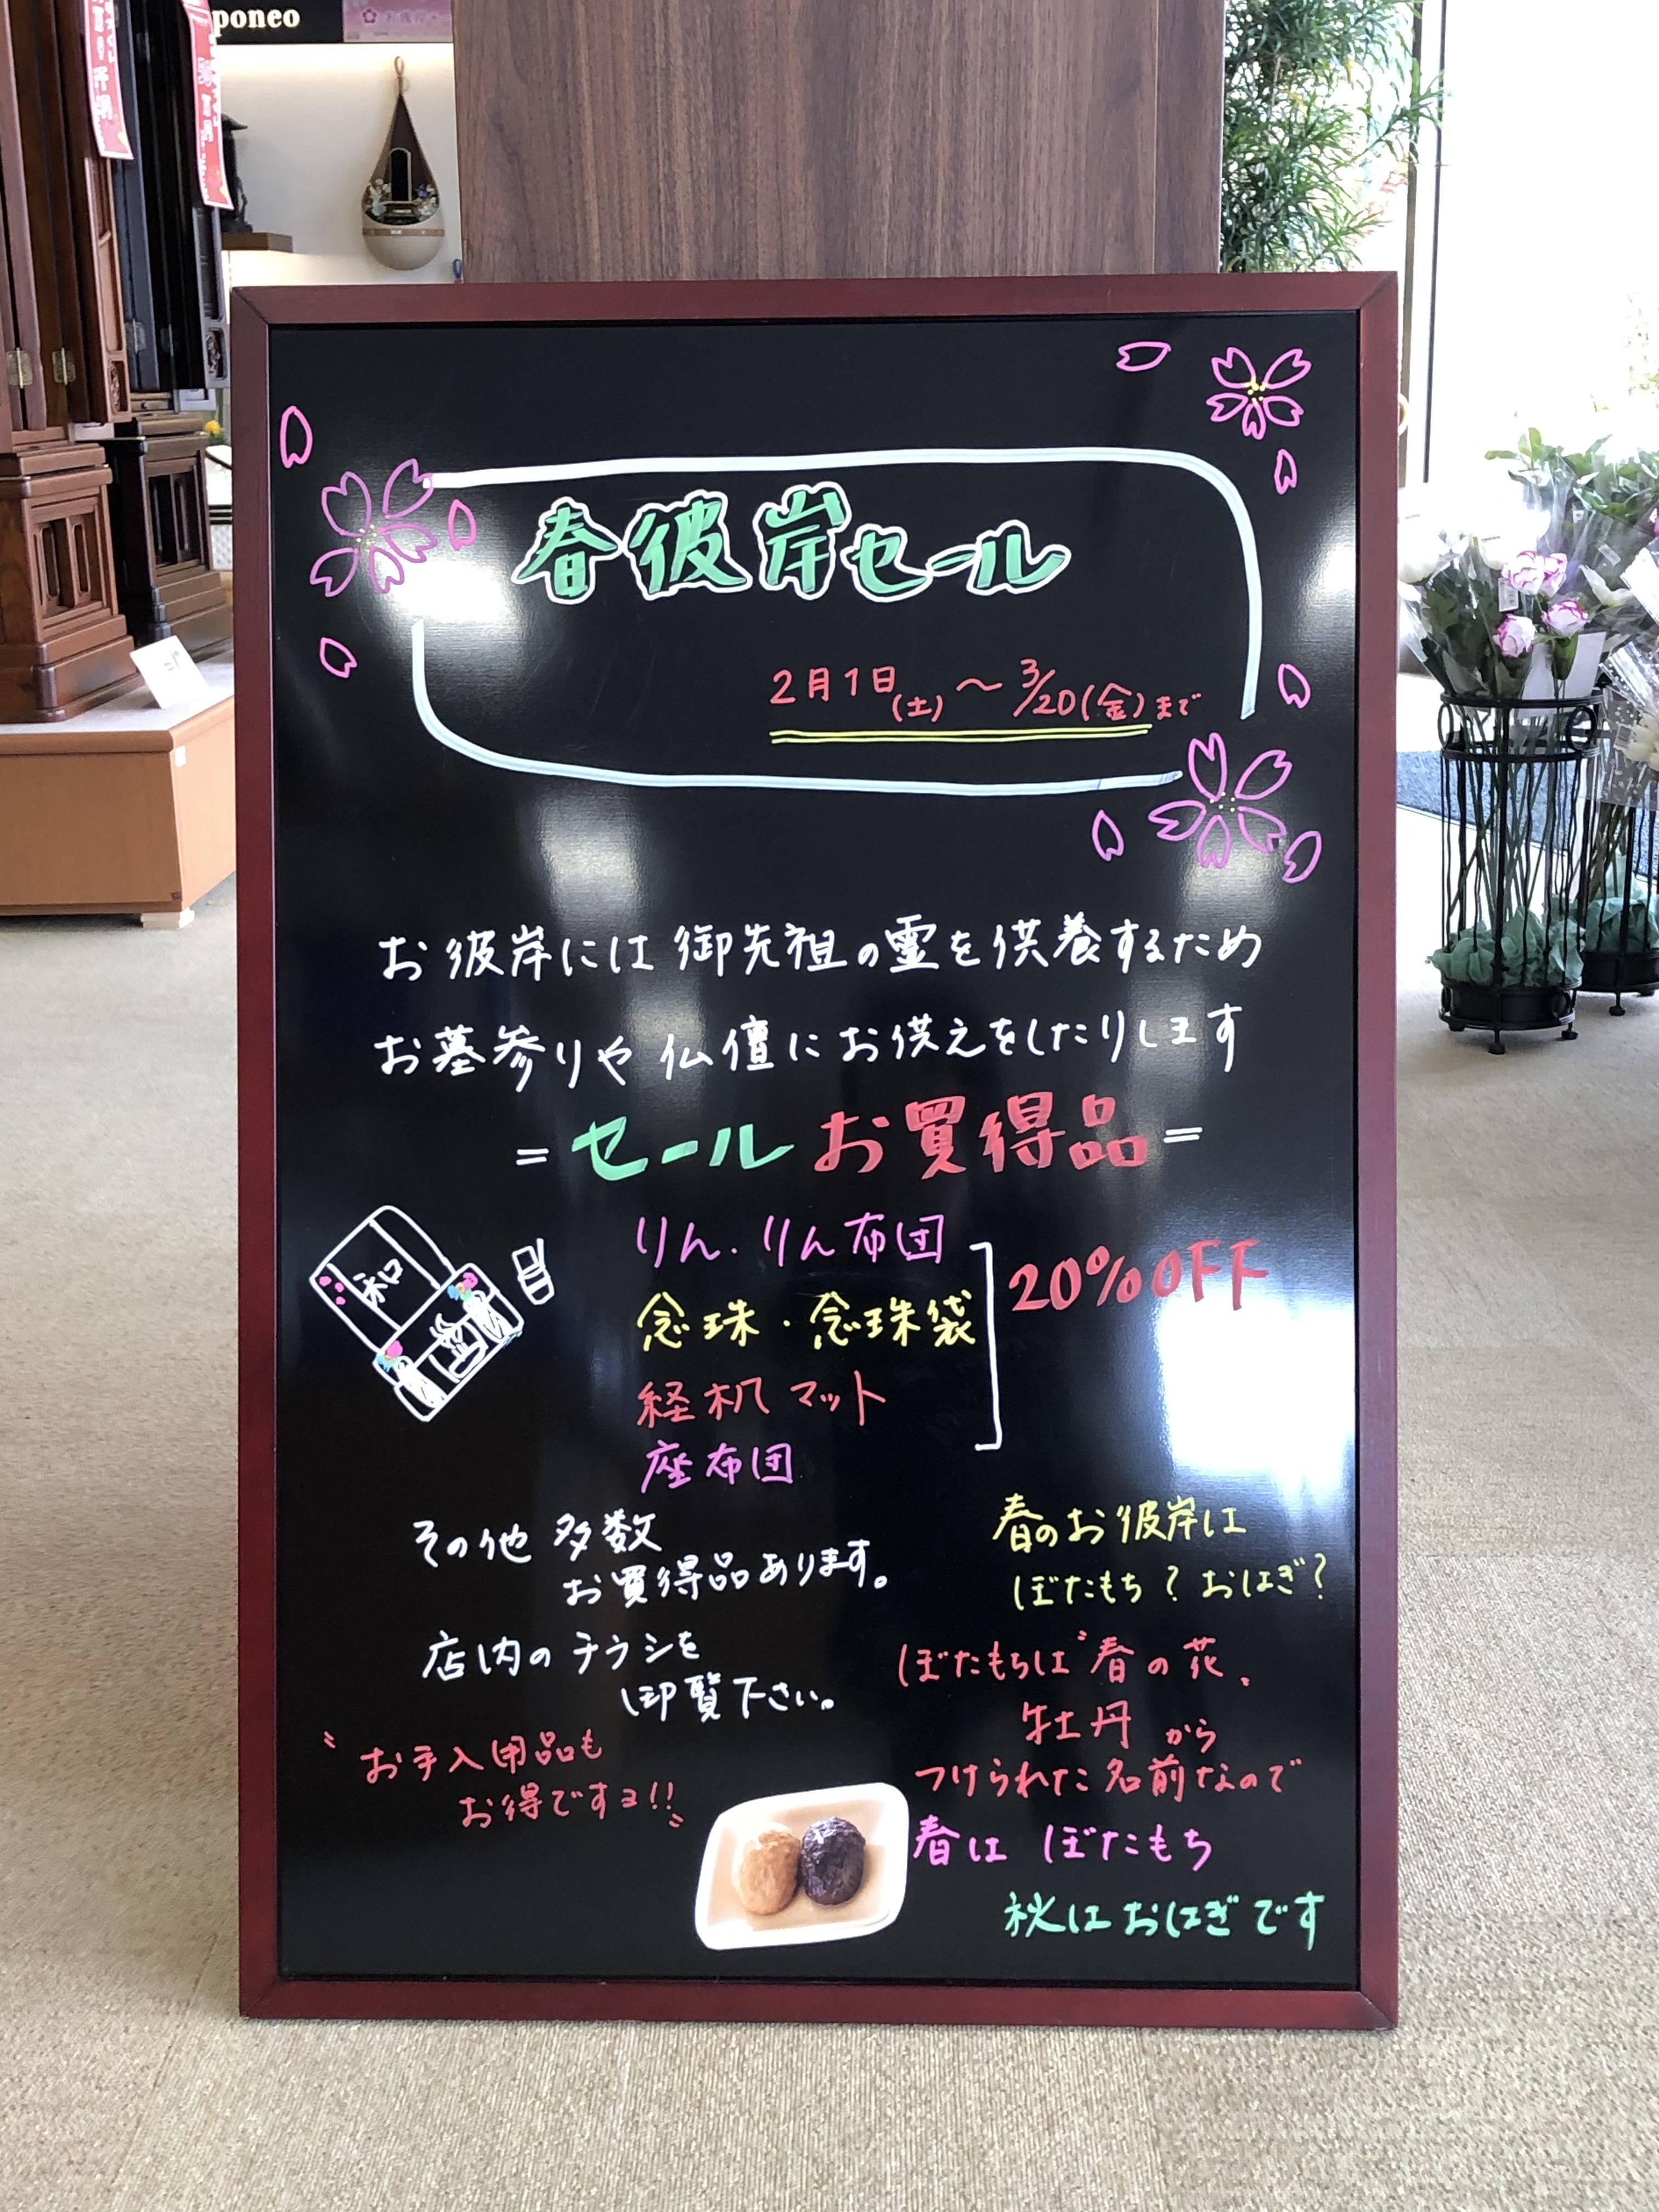 poneo
春彼岸セール
2月1日(土)～3/20(金)まで
お彼岸には御先祖の霊を供養するため
お墓参りや仏壇にお供えをしたりします
=セールお買得品=
りん・りん布団
念珠・念珠袋
経机マット
座布団
20%OFF
和
その他 多数
お買得品あります。
店内のチラシを
御覧下さい。
〝お手入用品も
お得ですヨ!!〟
春のお彼岸は
ぼたもち?おはぎ?
ぼたもちは〝春の花〟
牡丹から
つけられた名前なので
春は ぼたもち
秋は おはぎです